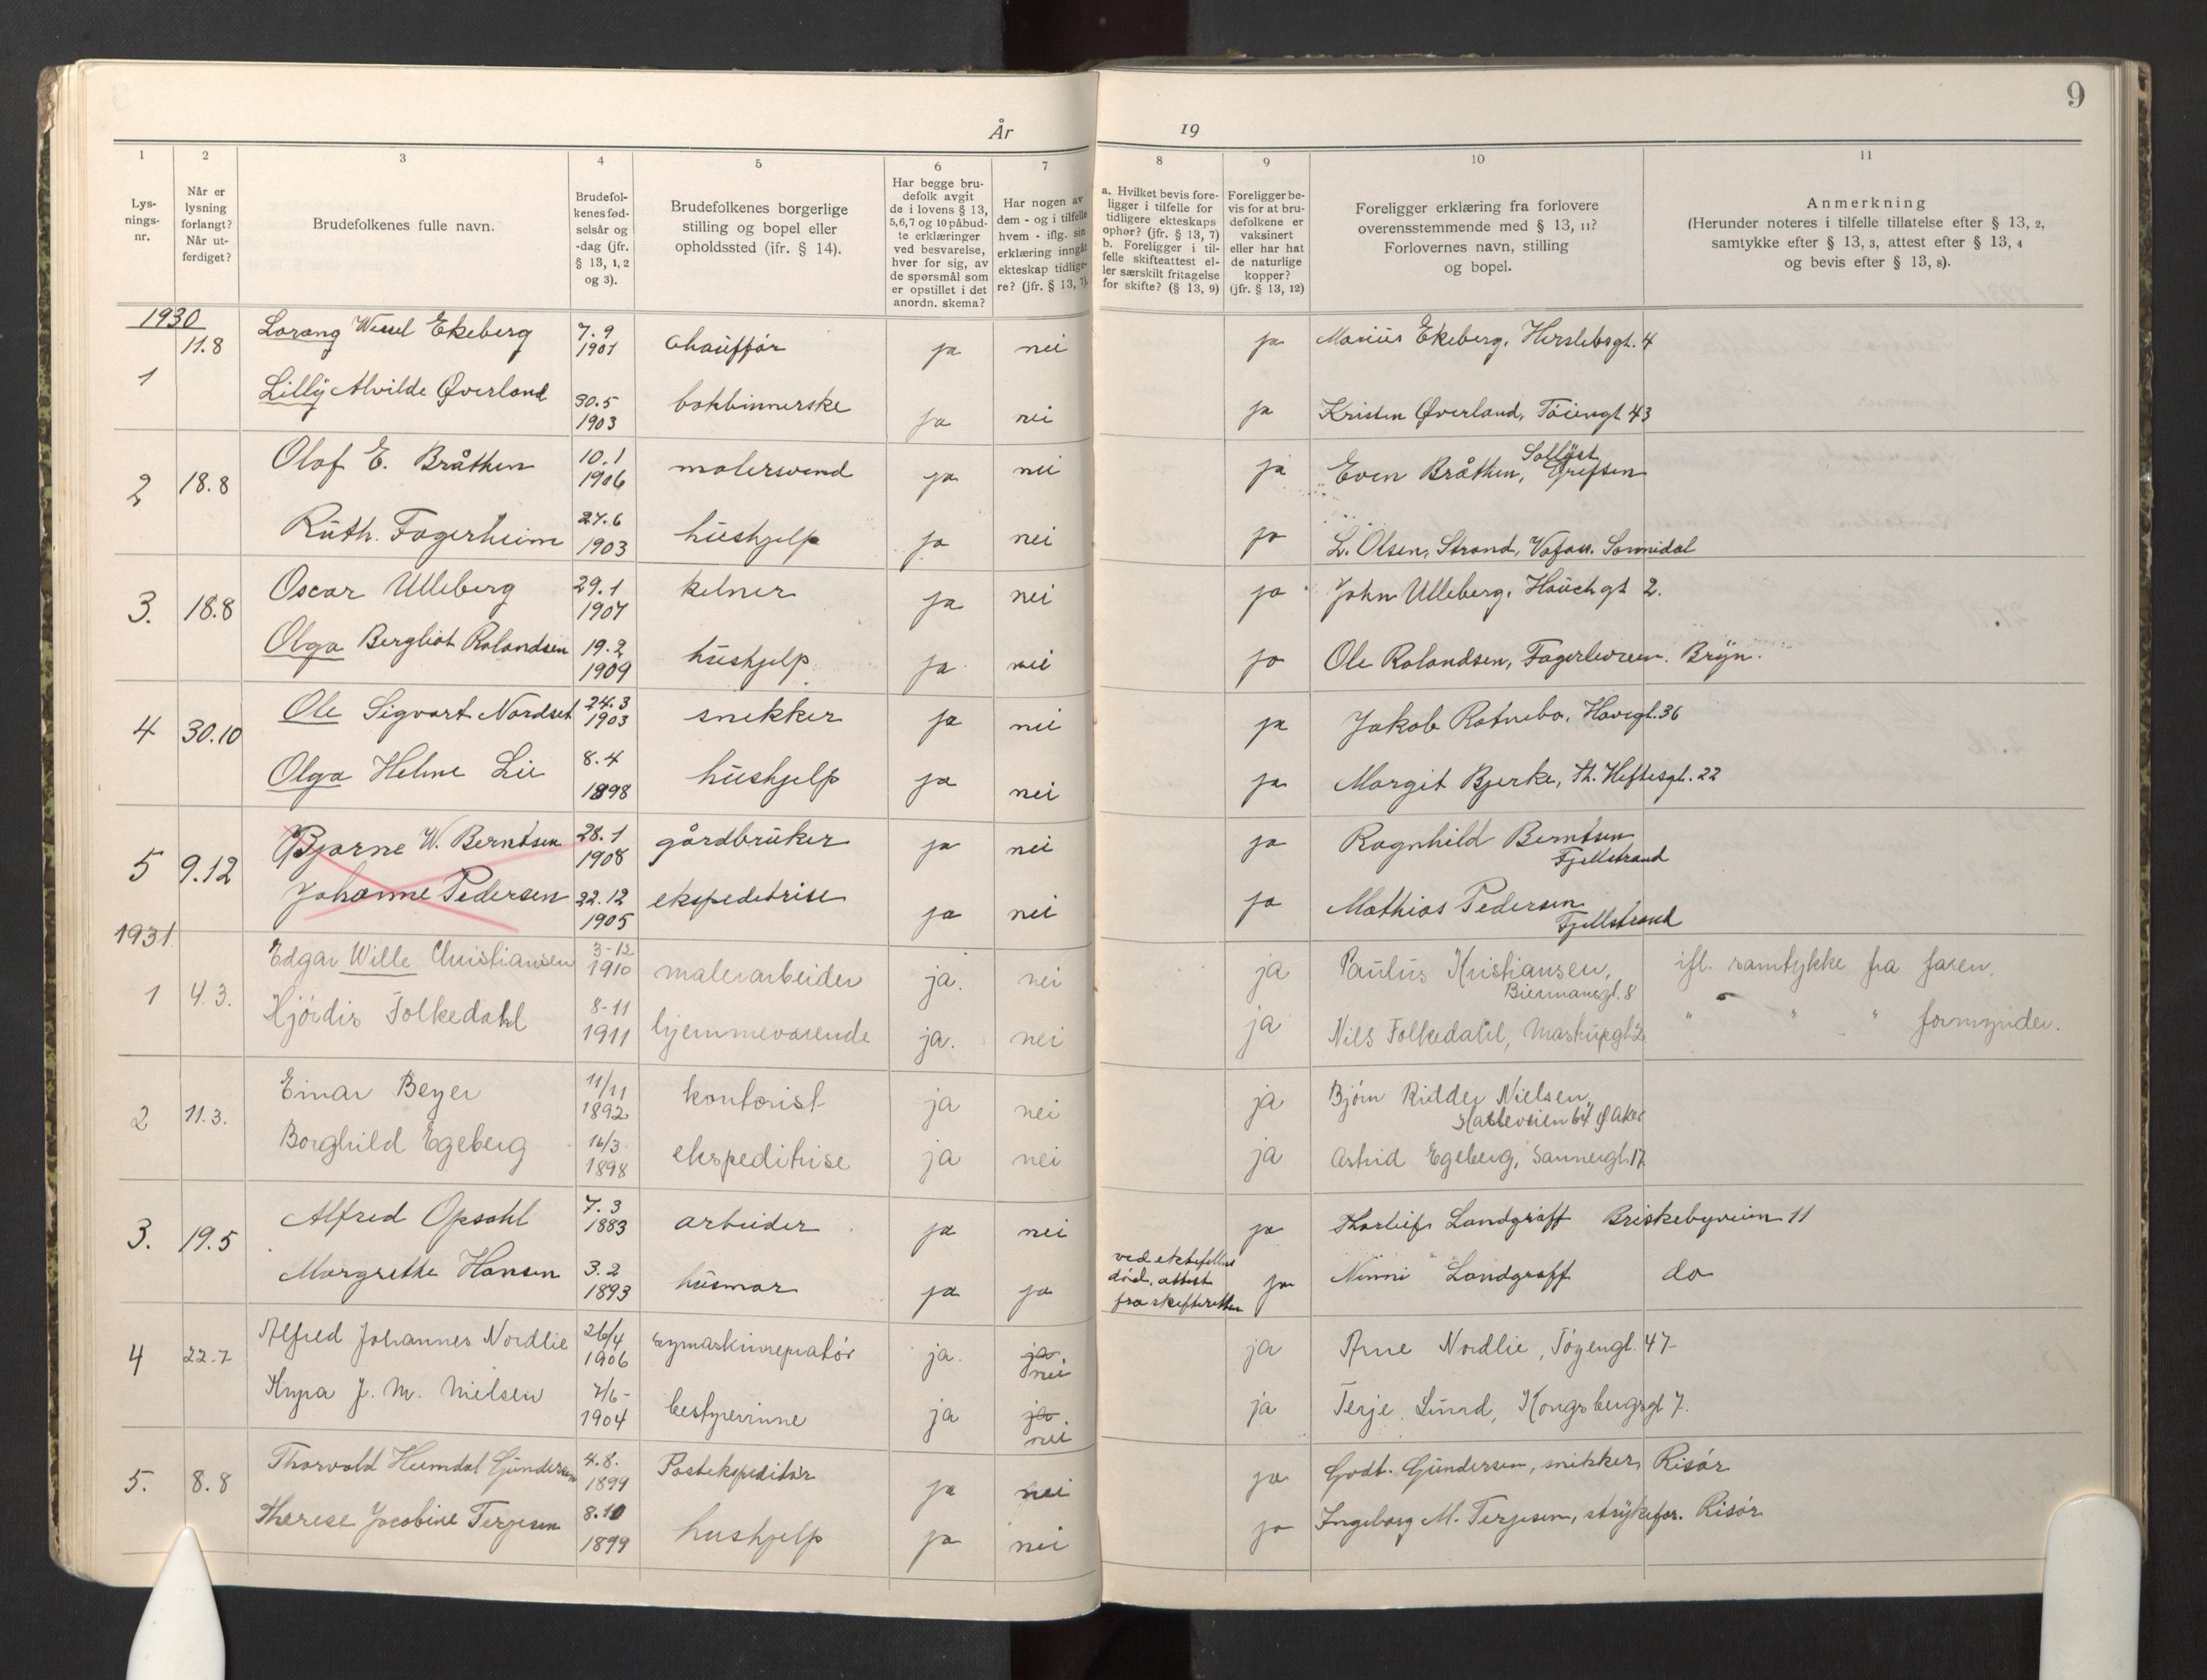 9
År 19
1 2 3 4 5 6 7 8 9 10 11
Lys-
nings-
nr.
Når er
lysning
forlangt?
Når ut-
ferdiget?
Brudefolkenes fulle navn.
Brudefol-
kenes fød-
selsår og
-dag (jfr.
§ 13, 1, 2
og 3).
Brudefolkenes borgerlige
stilling og bopel eller
opholdssted (jfr. § 14).
Har begge bru-
defolk avgit
de i lovens § 13,
5,6,7 og 10 påbud-
te erklæringer
ved besvarelse,
hver for sig, av
de spørsmål som
er opstillet i det
anordn. skema?
Har nogen av
dem - og i tilfelle
hvem - iflg. sin
erklæring inngåt
ekteskap tidlige-
re? (jfr. § 13, 7).
a. Hvilket bevis fore-
ligger i tilfelle for
tidligere ekteskaps
ophør? (jfr. § 13, 7)
b. Foreligger i til-
felle skifteattest el-
ler særskilt fritagelse
for skifte? (§ 13, 9)
Foreligger be-
vis for at bru-
defolkene er
vaksinert
eller har hat
de naturlige
kopper?
(jfr. § 13, 12)
Foreligger erklæring fra forlovere
overensstemmende med § 13, 11?
Forlovernes navn, stilling
og bopel.
Anmerkning
(Herunder noteres i tilfelle tillatelse efter § 13, 2,
samtykke efter § 13, 3, attest efter § 13, 4
og bevis efter § 13, 8).
1930
1 11.8 Lorang Wessel Ekeberg 7.9 1901 chauffør ja nei ja Marius Ekeberg, Herslebsgt. 4
Lilly Alvilde Øverland 30.5 1903 bokbinnerske ja nei ja Kristen Øverland, Tøiengt 43
2 18.8 Olaf E. Bråthen 10.1 1906 malersvend ja nei ja Even Bråthen, Solløst Grefsen
Ruth. Fagerheim 27.6 1903 hushjelp ja nei ja L. Olsen, Strand, Sannidal
3. 18.8 Oscar Ulleberg 29.1 1907 kelner ja nei ja John Ulleberg, Hauchgt 2.
Olga Bergliot Rolandsen 19.2 1909 hushjelp ja nei ja Ole Rolandsen, Bryn.
4 30.10 Ole Sigvart Nordset 24.3 1903 snekker ja nei ja Jakob Rotnebo, Havegt. 36
Olga Helene Lie 8.4 1898 hushjelp ja nei ja Margit Bjerke, Th. Heftesgt. 22
5 9.12 Bjarne W. Berntsen 28.1 1908 gårdbruker ja nei ja Ragnhild Berntsen
Fjellstrand
Johanne Pedersen 22.12 1905 ekspeditrise ja nei ja Mathias Pedersen
Fjellstrand
1931
1 4.3. Edgar Wille Christiansen 3-12 1910 malerarbeider ja. nei ja Paulus Kristiansen, ifl. samtykke fra faren.
Biermansgt. 8
Hjørdis Folkedahl 8-11 1911 hjemmeværende ja. nei ja Nils Folkedahl, " " " formynder.
2 11.3. Einar Beyer 11/11 1892 kontorist ja nei ja Bjørn Ridder Nielsen,
64 Ø. Aker
Borghild Egeberg 16/3 1898 ekspeditrise ja nei ja Astrid Egeberg, Sannergt. 17
3. 19.5 Alfred Opsahl 7.3 1883 arbeider ja nei ja Thorleif Landgraff Briskebyveien 11
Margrethe Hansen 3.2 1893 husmor ja ja
ved ektefellens
død, attest
fra skifteretten
ja Ninni Landgraff do
4 22.7 Alfred Johannes Nordlie 26/4 1906 symaskinreparatør ja. ja nei ja Arne Nordlie, Tøyengt. 47
Kyra J. M. Nielsen 7/6- 1904 bestyrerinne ja ja nei ja Terje Lund, Kongsbergsgt 7.
5. 8.8 Thorvald Heimdal Gundersen 4.8. 1899 Postekspeditør ja nei ja Godt. Gundersen, snikker, Risør
Therese Jacobine Terjesen 8.10 1899 hushjelp ja nei ja Ingeborg M. Terjesen, strykefor. Risør